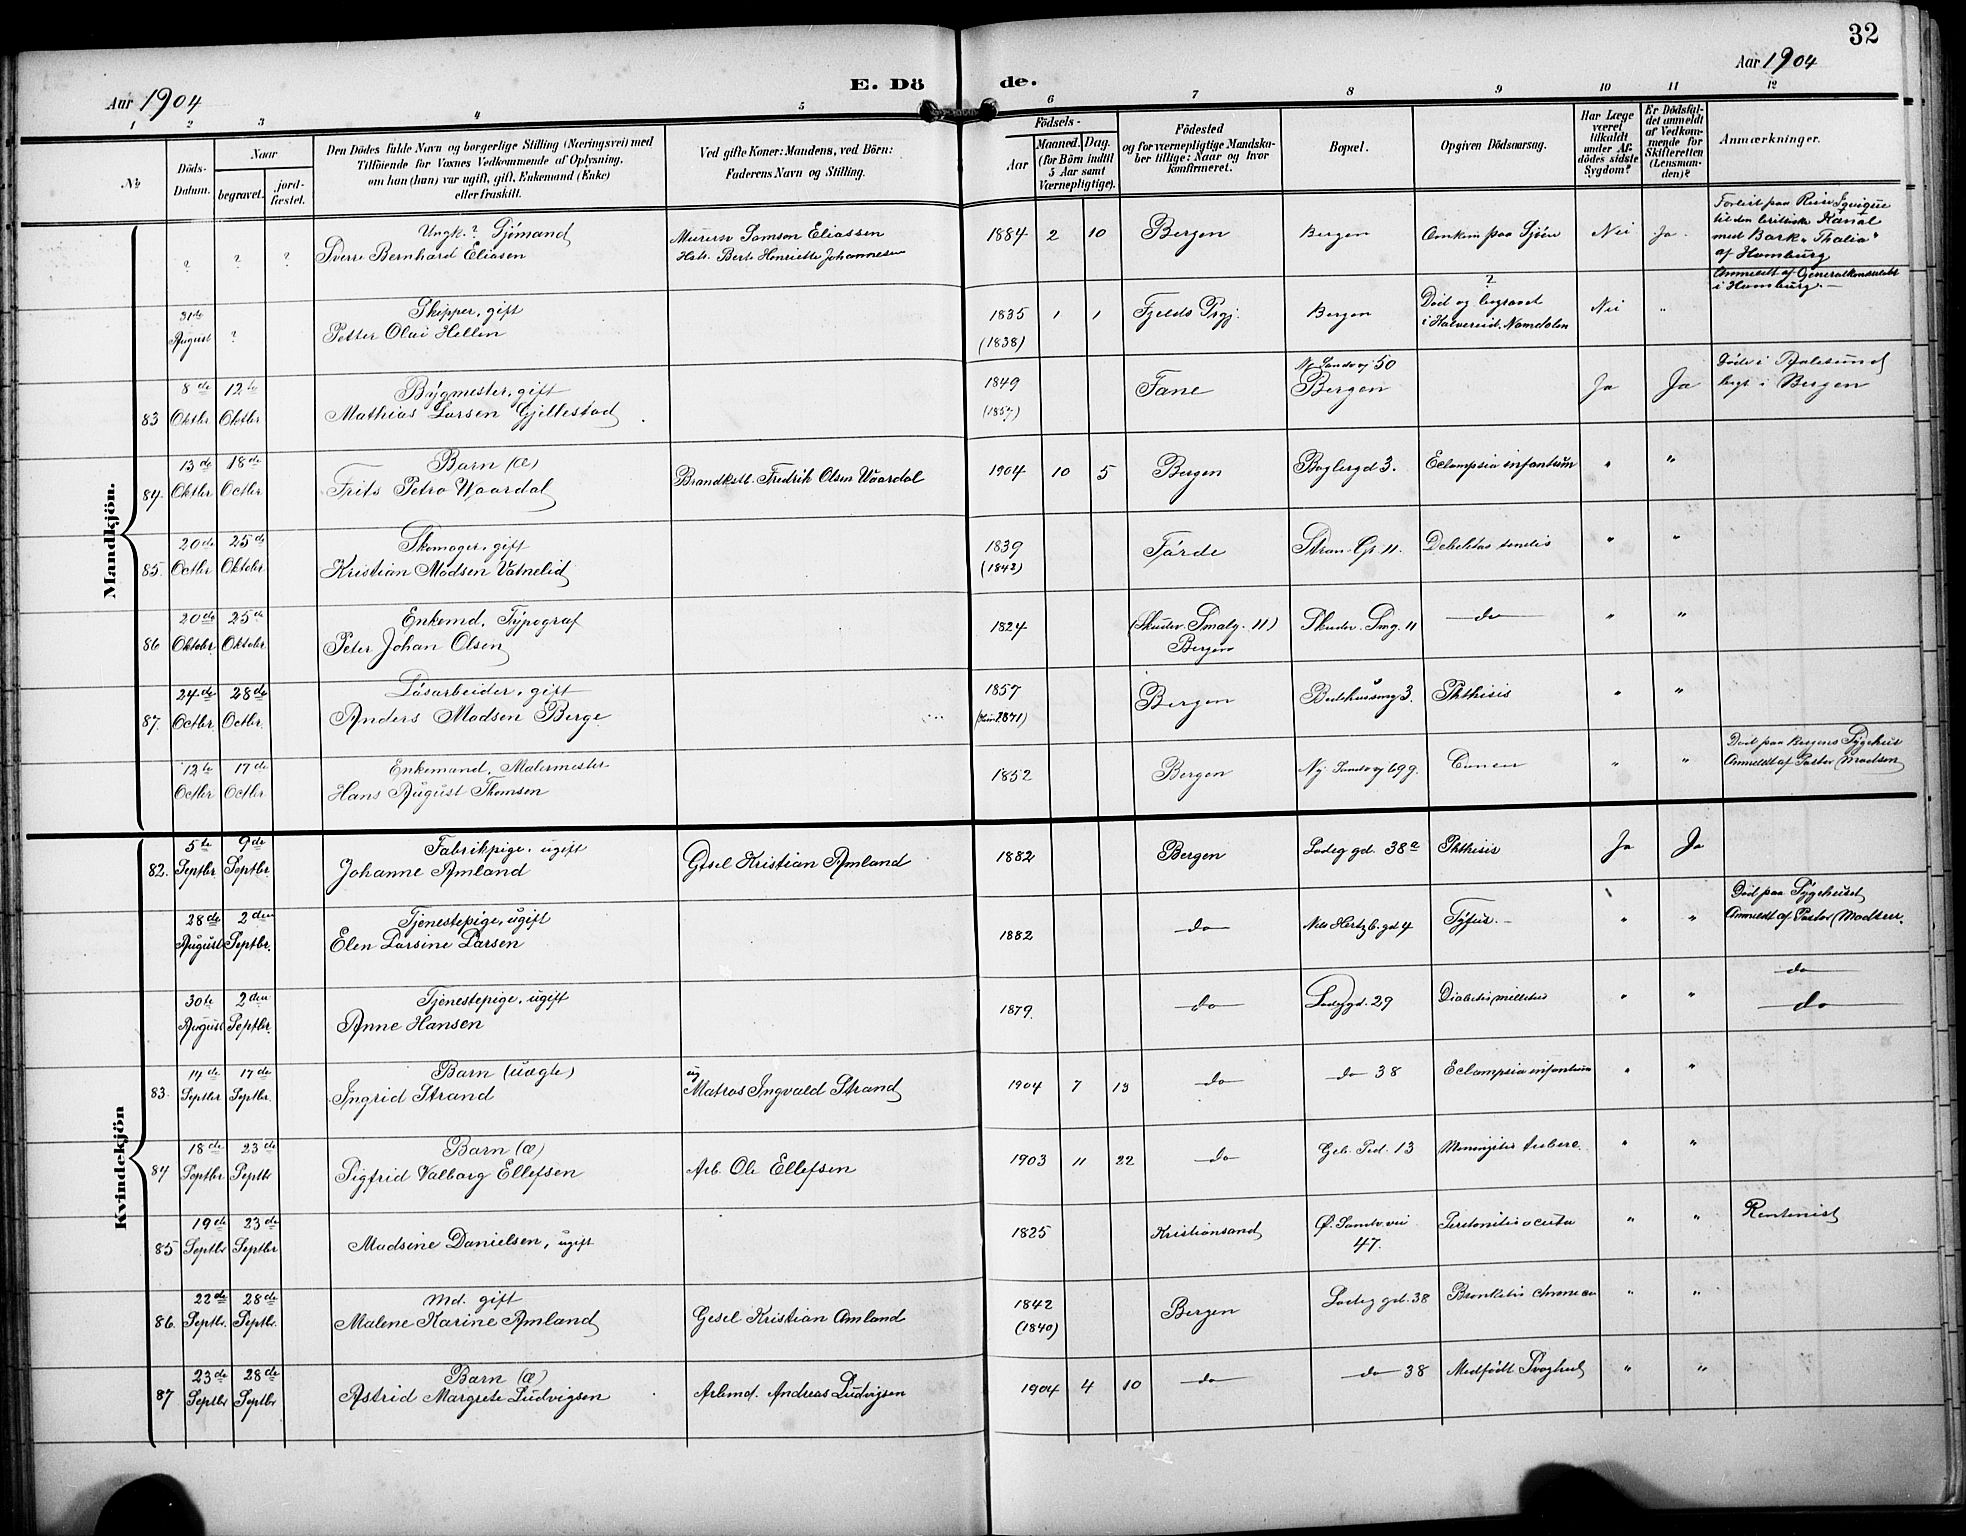 32
Aar 1904
E. Dö de.
Aar 1904
1 2 3 4 5 6 7 8 9 10 11 12
No
Döds-Datum.
Naar
begravet.
jord-fæstet.
Den Dödes fulde Navn og borgerlige Stilling (Næringsvei) med
Tilföiende for Voxnes Vedkommende af Oplysning,
om han (hun) var ugift, gift, Enkemand (Enke)
eller fraskilt.
Ved gifte Koner: Mandens, ved Börn:
Faderens Navn og Stilling.
Födsels-
Aar
Maaned. Dag.
(for Börn indtil
5 Aar samt
Værnepligtige).
Födested
og for værnepligtige Mandska-
ber tillige: Naar og hvor
konfirmeret.
Bopæl.
Opgiven Dödsaarsag.
Har Læge
været
tilkaldt
under Af-
dödes sidste
Sygdom?
Er Dödsfal-
det anmeldt
af Vedkom-
mende for
Skifteretten
(Lensman-
den)?
Anmærkninger.
Mandkjön.
? ? ? Ungk. ? Sjömand
Sverre Bernhard Eliasen
Murersv Samson Eliassen
Hstr. Bert. Henriette Johannesen
1884 2 10 Bergen Bergen Omkom paa Sjöen Nei Ja.
Forlist paa Reise
til den britiske Kanal
med Bark "Thalia"
af Hamburg
Anmeldt af Generalkonsulatet
i Hamburg.—
31te August ? Skipper, gift
Petter Olai Hellen
1835 (1838) 1 1 Fjelds Prgj. Bergen
?
Död og begravet
i Namdalen Nei "
83 8de Oktbr 12te Oktbr Bygmester, gift
Mathias Larsen Gjellestad
1849 (1857) Fane Ny Sandv 50
Bergen Ja Ja
Döde i Aalesund
begr i Bergen
84. 13de Oktbr 18de Octbr. Barn (æ)
Frits Petro Waardal
Brandkstb. Fredrik Olsen Waardal
1904 10 5 Bergen Baglergd 3. Eclampsia infantum " "
85. 20de Octbr 25de Oktobr. Skomager, gift
Kristian Madsen Vatnelid
1839 (1842) Förde Stran. Gr. 11. Debelitas senelis " "
86 20de Oktobr. 25de Oktobr. Enkemd, Typograf
Peter Johan Olsen
1824 (Skuder. Smalg. 11)
Bergen Skuder. Smg. 11 —do— " "
87. 24de Octbr. 28de Octbr. Lösarbeider, gift
Anders Madsen Berge
1857 Bergen Bedehussmg 3. Phthisis " "
12te Octbr. 17de Octbr. Enkemand, Malermester
Hans August Thomsen
1852 Bergen Ny. Sandv 69 g. Cancer " "
Död paa Bergens Sygehus
Anmeldt af Pastor Madsen
Kvindekjön
82. 5te Septbr 9de Septbr. Fabrikpige, ugift
Johanne Amland
Gesel Kristian Amland
1882 Bergen Ladeg gd. 38a Phthisis Ja Ja
28de August 2den Septbr. Tjenestepige, ugift
Elen Larsine Larsen
1882 —do— Nils Hertzb. gd 4 Tyfus.— " "
Död paa Sygehuset
Anmeldt af Pastor Madsen.
30te August 2den Septbr. Tjenestepige, ugift
Anne Hansen
1879. —do— Ladeggd. 29 Diabetis mellitus " "
—do—
—do—
83. 14de Septbr 17de Septbr. Barn (uægte)
Ingrid Strand
ug
Matros Ingvald Strand
1904 7 13 —do— —do— 38 Eclampsia infantum " "
84 18de Septbr 23de Septbr Barn (æ)
Sigfrid Valborg Ellefsen
Arb. Ole Ellefsen
1903 11 22 —do— Geb. Ped. 13 Meningitis tuberc. " "
85 19de Septbr 23de Septbr
Madsine Danielsen, ugift
1825 Kristiansand Ö. Sandv.vei
47. Peretonitis acuta " " Rentenist
86. 22de Septbr. 28de Septbr. Md. gift
Malene Karine Amland
Gesel Kristian Amland
1842 (1840) Bergen Ladeg gd. 38 Bronketis chronica " "
87 23de Septbr 28de Septbr Barn (æ)
Astrid Margrete Ludvigsen
Arbmd. Andreas Ludvigsen
1904 4 10 —do— —do— 38 Medfödt Svaghed " "